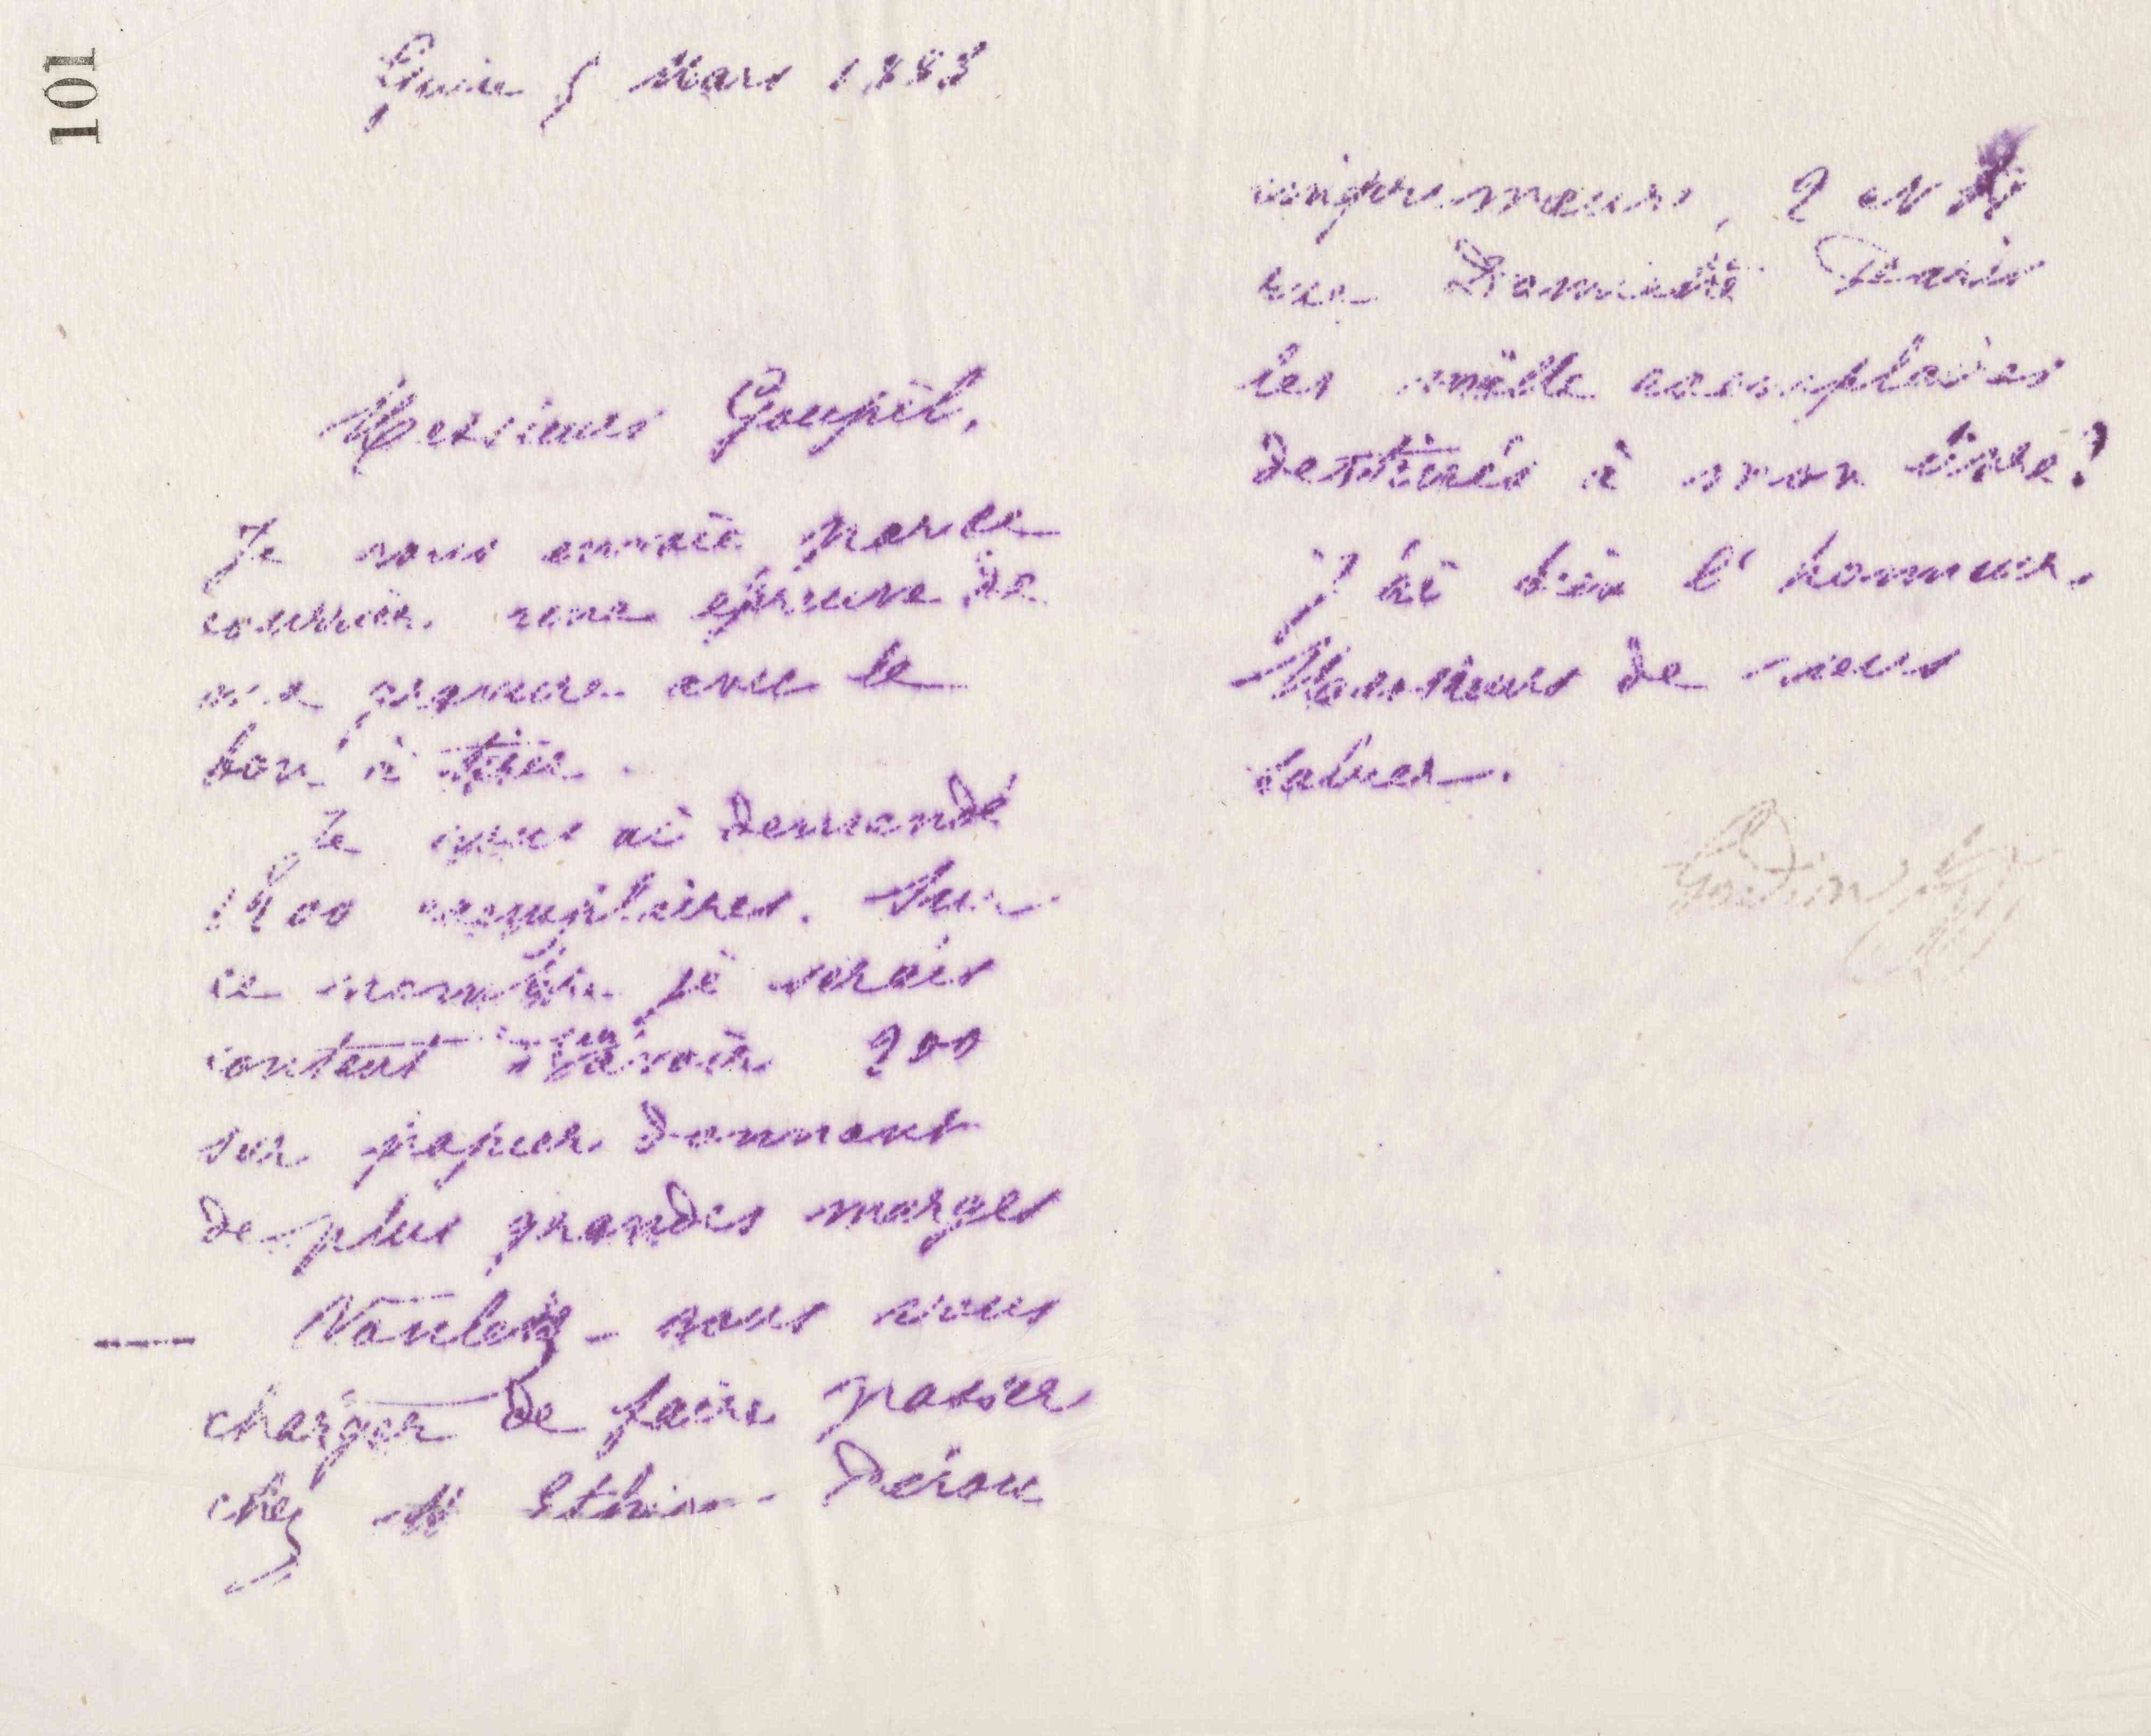 101
Guise 5 Mars 1883
Messieurs Goupil,
Je vous envoie par ce
courrier une épreuve de
ma gravure avec le
bon à tirer.
Je vous ai demandé
1200 exemplaires. Sur
ce nombre je serais
content d'en avoir 200
sur papier donnant
de plus grandes marges
Voulez-vous vous
charger de faire passer
chez M Ethiou-Pérou
imprimeurs, 2 et
rue Damiette Paris
les mille exemplaires
destinés à mon livre?
J'ai bien l'honneur,
Messieurs de vous
saluer.
Godin